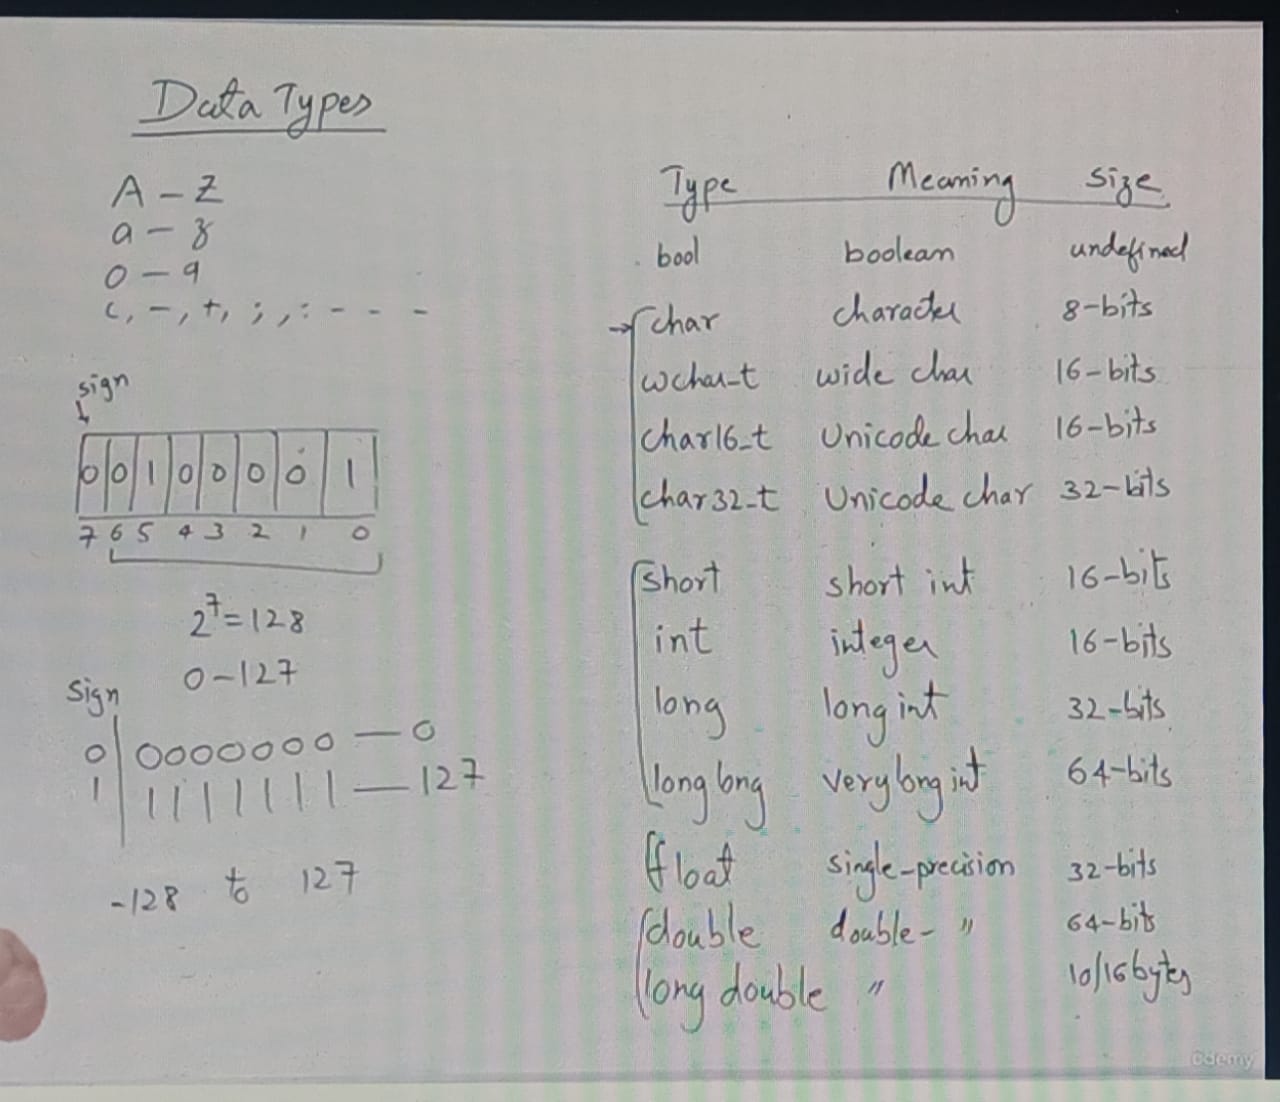 Data Types
A - Z
a - z
0 - 9
(, -, +, ; , : - - -
sign
0 0 1 0 0 0 0 1
7 6 5 4 3 2 1 0
2⁷ = 128
0 - 127
Sign
0 0000000 — 0
1 1111111 — 127
-128 to 127
Type Meaning Size
bool boolean undefined
char character 8-bits
wchar_t wide char 16-bits
char16_t Unicode char 16-bits
char32_t Unicode char 32-bits
short short int 16-bits
int integer 16-bits
long long int 32-bits
long long very long int 64-bits
float single-precision 32-bits
double double- " 64-bits
long double " 10/16 bytes
Udemy